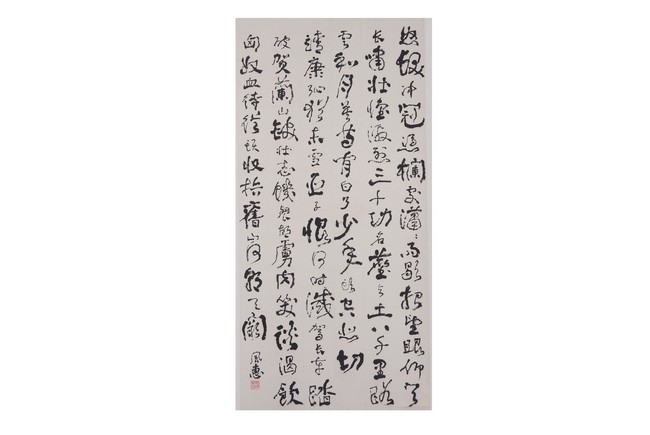 怒髮冲冠憑欄處瀟〻雨歇抬望眼仰天
长嘯壯懷激烈三十功名塵与土八千里路
雲和月莫等閒白了少年頭空悲切
靖康恥猶未雪臣子恨何時滅駕长車踏
破贺蘭山缺壯志饑餐胡虜肉笑談渴飲
匈奴血待從頭收拾舊山河朝天闕
風惠